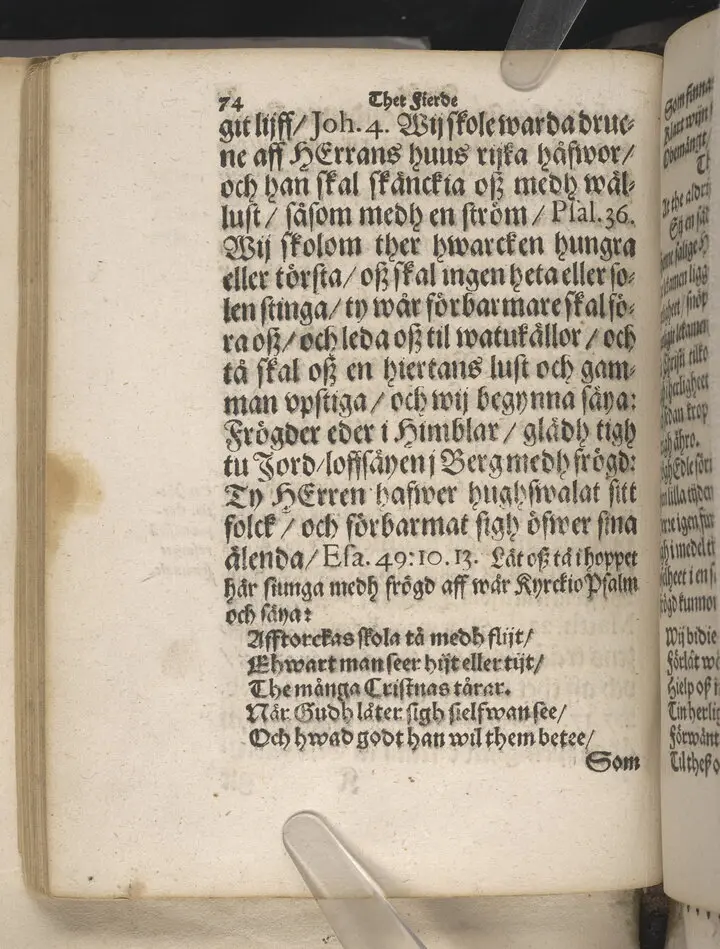 74 Thet Fierde
git lijff/ Joh. 4. Wij skole warda druc⸗
ne aff HErrans huus rijka håfwor/
och han skal skänckia oß medh wäl⸗
lust/ såsom medh en ström/ Psal. 36.
Wij skolom ther hwarcken hungra
eller törsta/ oß skal ingen heta eller so⸗
len stinga/ ty wår förbarmare skal fö⸗
ra oß/ och leda oß til watukällor/ och
tå skal oß en hiertans lust och gam⸗
man vpstiga/ och wij begynna säya:
Frögder eder i Himblar/ glädh tigh
tu Jord/ loffsäyen j Berg medh frögd:
Ty HErren hafwer hughswalat sitt
folck/ och förbarmat sigh öfwer sina
älenda/ Esa. 49:10.13. Låt oß tå i hoppet
här siunga medh frögd aff wår Kyrckio Psalm
och säya:
Afftorckas skola tå medh flijt/
Ehwart man seer hijt eller tijt/
The många Cristnas tårar.
När Gudh låter sigh sielfwan see/
Och hwad godt han wil them betee/
Som
Som finna
Klart wijn/
At the aldr
Wij bidie
Förlåt wå
Hielp oß i
Tin herlig
Förwänt
Til theß o